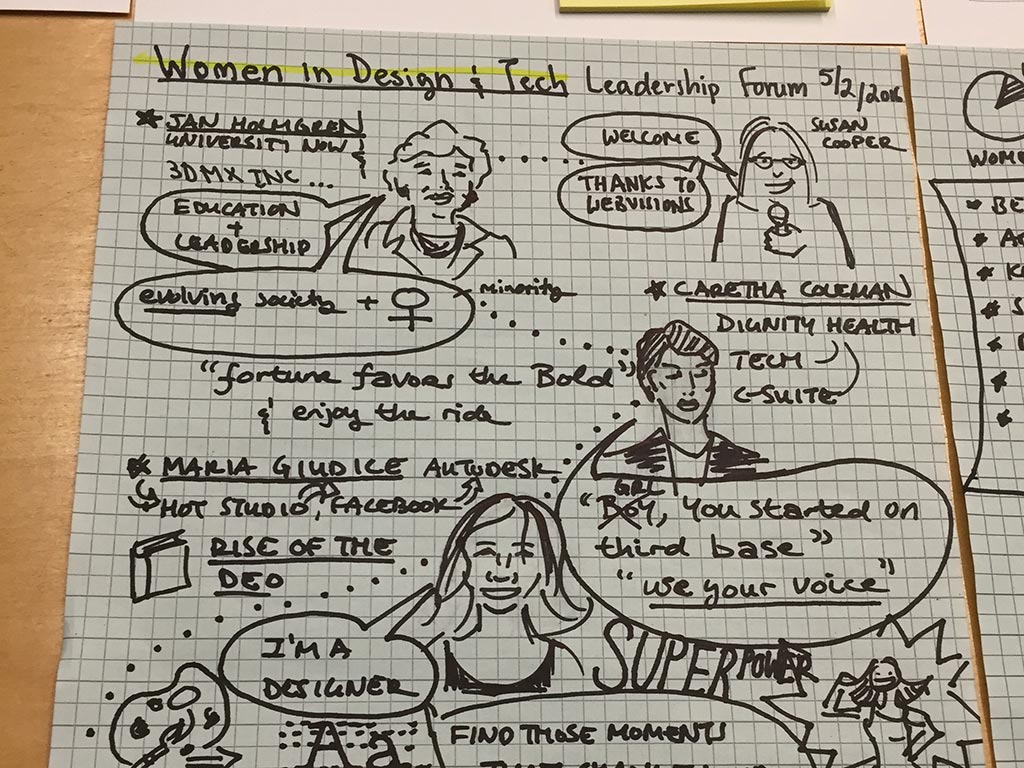 Women in Design & Tech Leadership Forum 5/2/2016
JAN HOLMGREN
UNIVERSITY NOW
3DMX INC ...
EDUCATION
+
LEADERSHIP
WELCOME
THANKS TO
WEBVISIONS
SUSAN
COOPER
evolving society + ♀
minority
"fortune favors the Bold"
& enjoy the ride
CARETHA COLEMAN
DIGNITY HEALTH
TECH
C-SUITE
GRL
"BOY, you started on
third base"
"use your voice"
MARIA GIUDICE AUTODESK
HOT STUDIO, FACEBOOK
RISE OF THE
DEO
I'M A
DESIGNER
Aa
SUPERPOWER
FIND THOSE MOMENTS